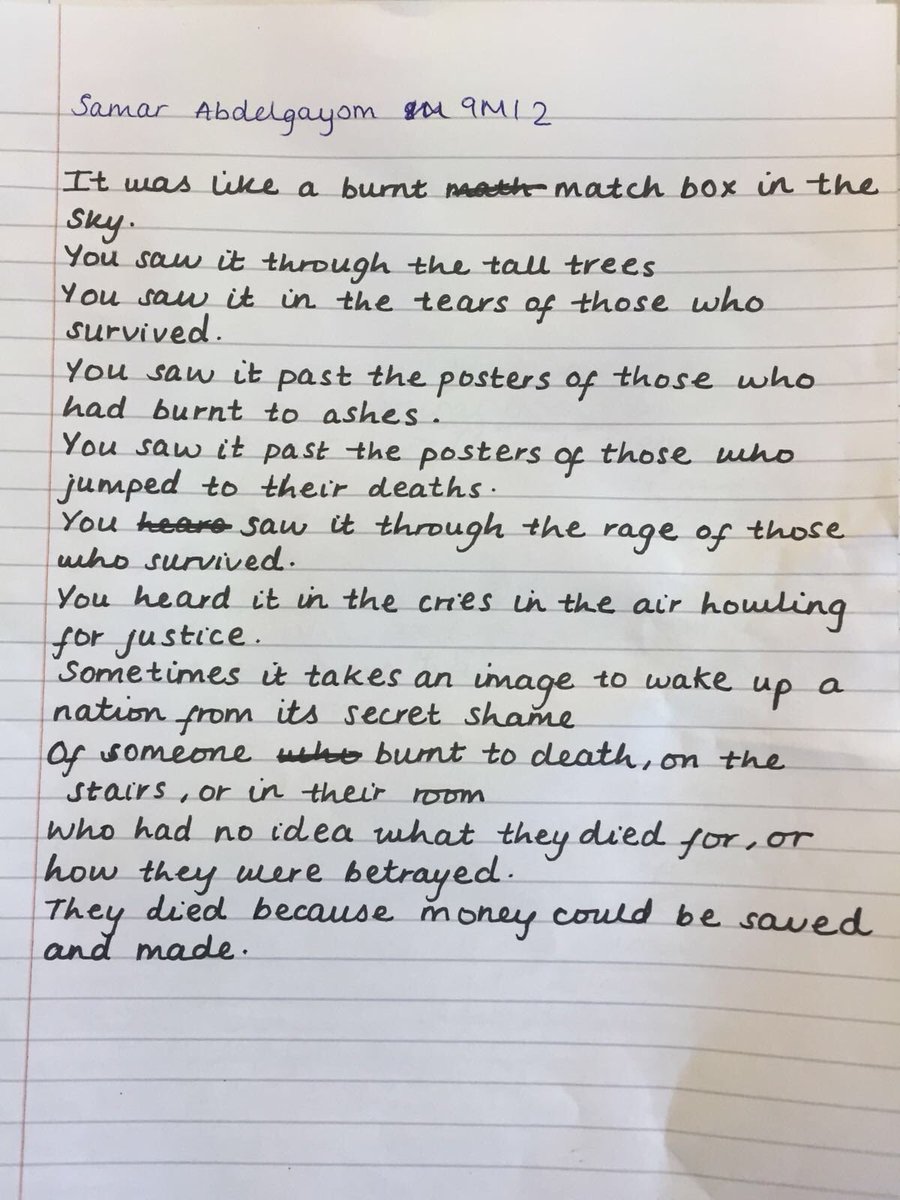 Samar Abdelgayom 9M12
It was like a burnt math match box in the
sky.
You saw it through the tall trees
You saw it in the tears of those who
survived.
You saw it past the posters of those who
had burnt to ashes.
You saw it past the posters of those who
jumped to their deaths.
You heard saw it through the rage of those
who survived.
You heard it in the cries in the air howling
for justice.
Sometimes it takes an image to wake up a
nation from its secret shame
Of someone who burnt to death, on the
stairs, or in their room
who had no idea what they died for, or
how they were betrayed.
They died because money could be saved
and made.